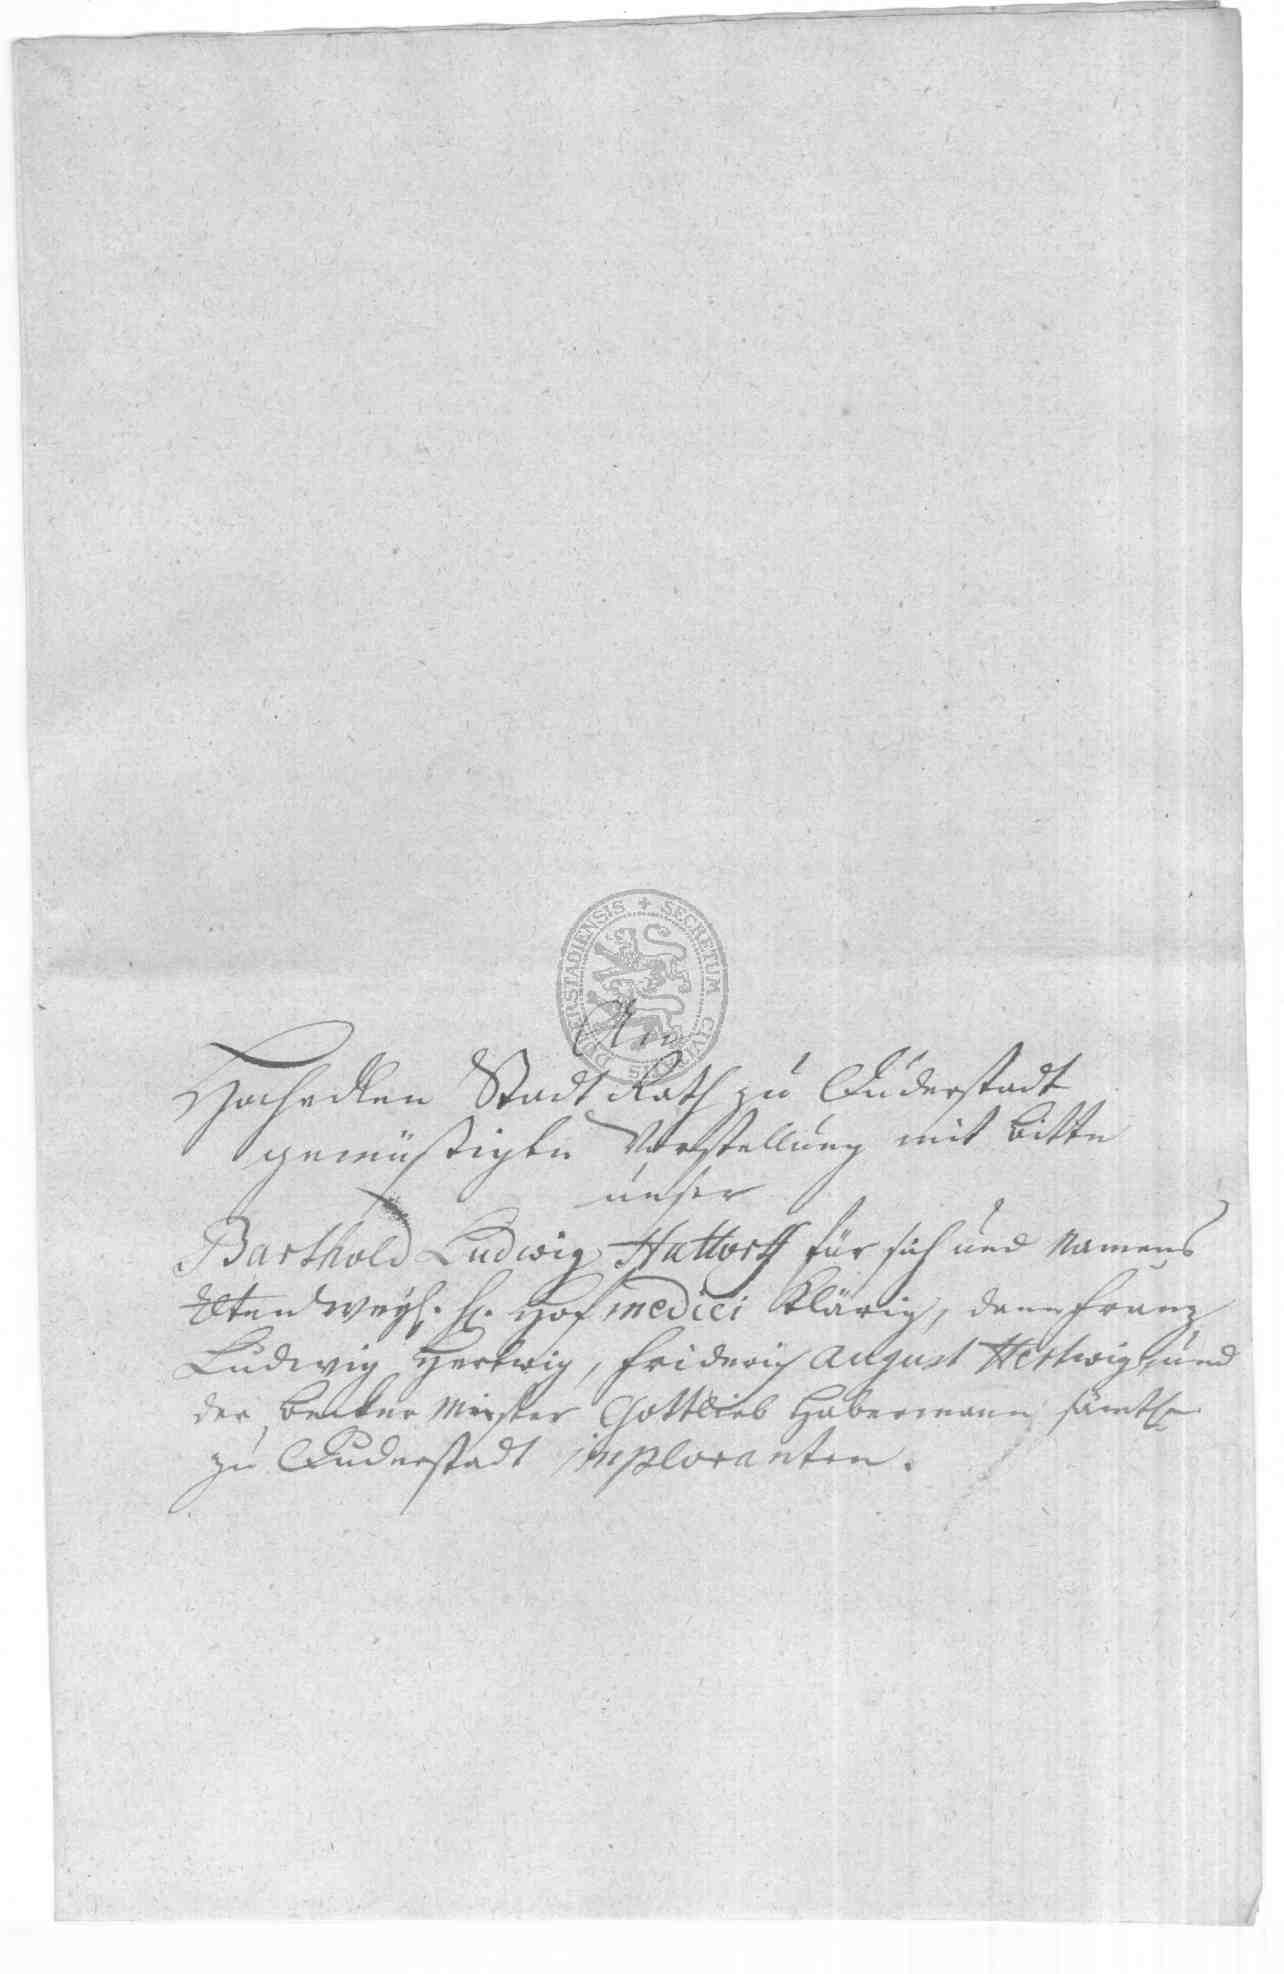 DUDERSTADIENSIS + SECRETUM CIVITATIS
An
Hochedlen Stadt Rath zu Duderstadt
gemüßigte Vorstellung mit bitte
unser
Barthold Ludwig Hattorff für sich und Namens
weyl. H. Hof medici Klärig, dann Franz
Ludwig Hertwig, Friderich August Hertwig, und
der becker Meister Gottlieb Habermann sämtl.
zu Duderstadt imploranten.